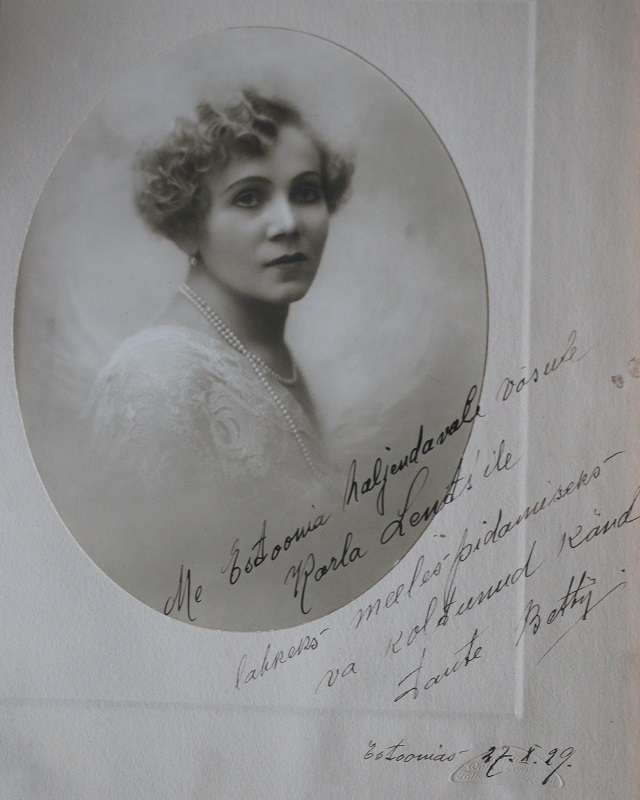 Me Estoonia haljendavale võsule
Karla Lents'ile
lahkeks meeles-pidamiseks
va koltunud känd
tante Betty.
Estoonias 27.X.29.